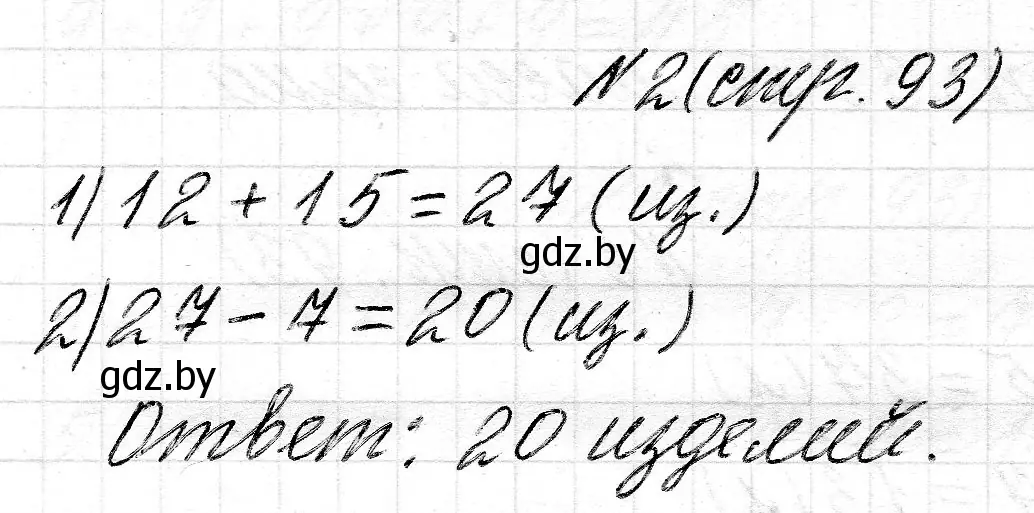 №2 (стр. 93)
1) 12 + 15 = 27 (из.)
gdz.by
2) 27 - 7 = 20 (из.)
gdz.by
Ответ: 20 изделий.